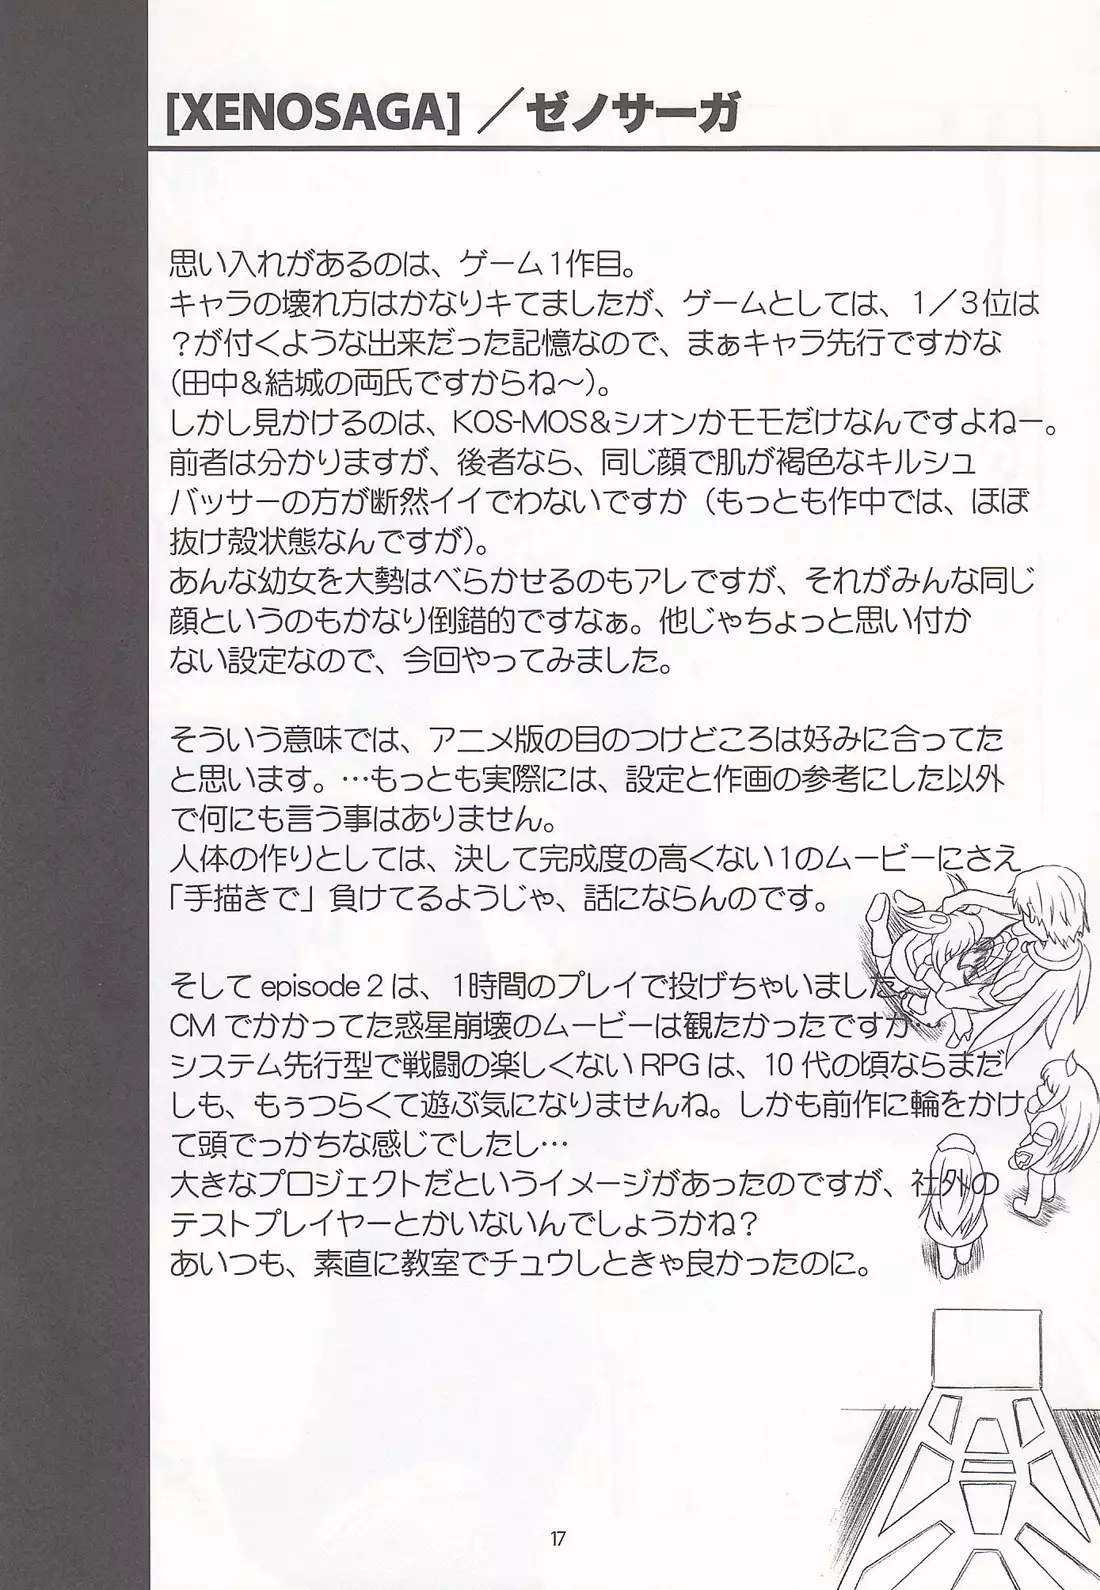 [XENOSAGA]／ゼノサーガ
思い入れがあるのは、ゲーム1作目。
キャラの壊れ方はかなりキてましたが、ゲームとしては、1／3位は
？が付くような出来だった記憶なので、まぁキャラ先行ですかな
（田中＆結城の両氏ですからね～）。
しかし見かけるのは、KOS-MOS＆シオンかモモだけなんですよねー。
前者は分かりますが、後者なら、同じ顔で肌が褐色なキルシュ
バッサーの方が断然イイでわないですか（もっとも作中では、ほぼ
抜け殻状態なんですが）。
あんな幼女を大勢はべらかせるのもアレですが、それがみんな同じ
顔というのもかなり倒錯的ですなぁ。他じゃちょっと思い付か
ない設定なので、今回やってみました。
そういう意味では、アニメ版の目のつけどころは好みに合ってた
と思います。…もっとも実際には、設定と作画の参考にした以外
で何にも言う事はありません。
人体の作りとしては、決して完成度の高くない1のムービーにさえ
「手描きで」負けてるようじゃ、話にならんのです。
そして episode 2 は、1時間のプレイで投げちゃいました。
CM でかかってた惑星崩壊のムービーは観たかったですが…
システム先行型で戦闘の楽しくない RPG は、10 代の頃ならまだ
しも、もぅつらくて遊ぶ気になりませんね。しかも前作に輪をかけ
て頭でっかちな感じでしたし…
大きなプロジェクトだというイメージがあったのですが、社外の
テストプレイヤーとかいないんでしょうかね？
あいつも、素直に教室でチュウしときゃ良かったのに。
17